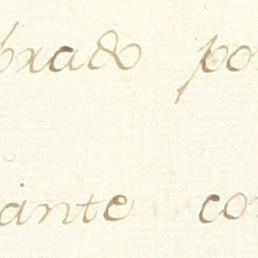 brado po
ante co